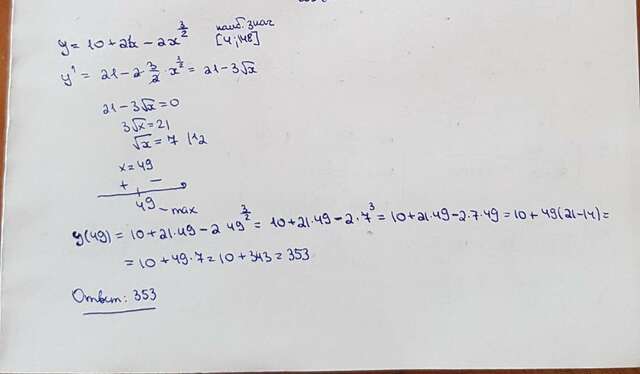 y = 10 + 21x − 2x^(3/2) наиб. знач
[4; 148]
y' = 21 − 2·3/2·x^(1/2) = 21 − 3√x
21 − 3√x = 0
3√x = 21
√x = 7 |^2
x = 49
+ −
49 − max
y(49) = 10 + 21·49 − 2·49^(3/2) = 10 + 21·49 − 2·7^3 = 10 + 21·49 − 2·7·49 = 10 + 49(21 − 14) =
= 10 + 49·7 = 10 + 343 = 353
Ответ: 353